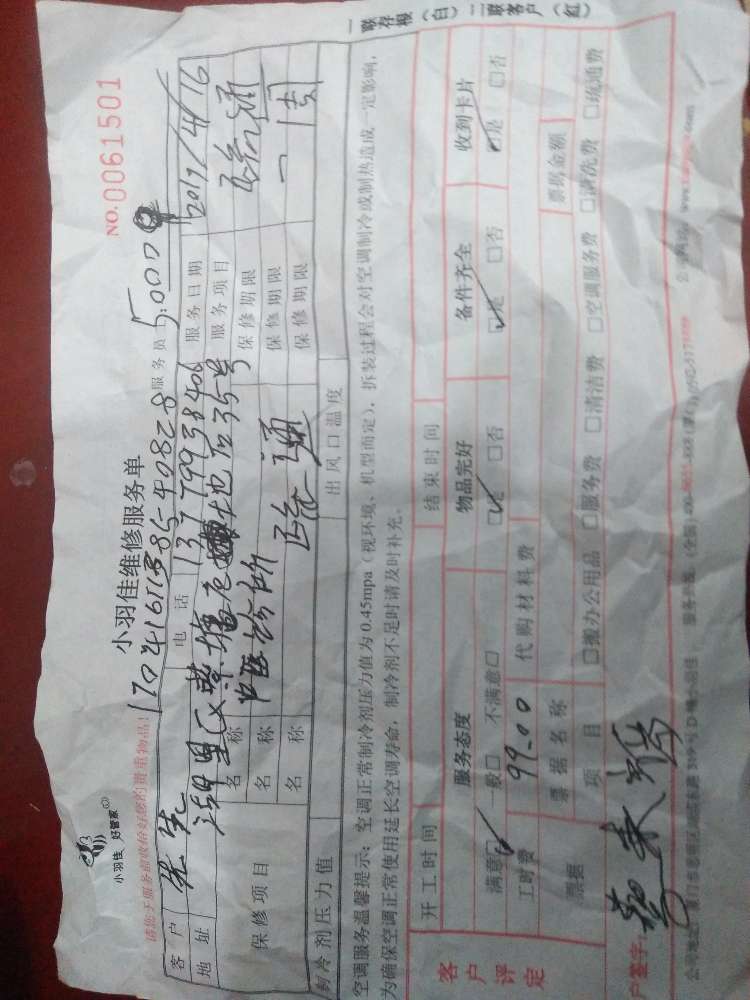 小羽佳 好管家
小羽佳维修服务单
NO.0061501
请您于服务前收拾好您的贵重物品!
服务员 5000
客户 先生 电话 13779938406 服务日期 2017/4/16
地址 湖里区蔡塘 后35号 服务项目 疏通
保修项目 名称 中医诊所 保修期限 一周
名称 疏通 保修期限
名称 保修期限
制冷剂压力值 出风口温度
空调服务温馨提示:空调正常制冷剂压力值为0.45mpa(视环境、机型而定),拆装过程会对空调制冷或制热造成一定影响,
为确保空调正常使用延长空调寿命,制冷剂不足时请及时补充。
开工时间 结束时间
客户评定 服务态度 物品完好 备件齐全 收到卡片
满意☑ 一般□ 不满意□ ☑是 □否 ☑是 □否 ☑是 □否
工时费 99.00 代购材料费
票据 票据名称 票据金额
项目 □搬办公用品 □服务费 □清洁费 □空调服务费 □清洗费 □疏通费
户签字:
公司地址:厦门市思明区
一联存根(白)二联客户(红)